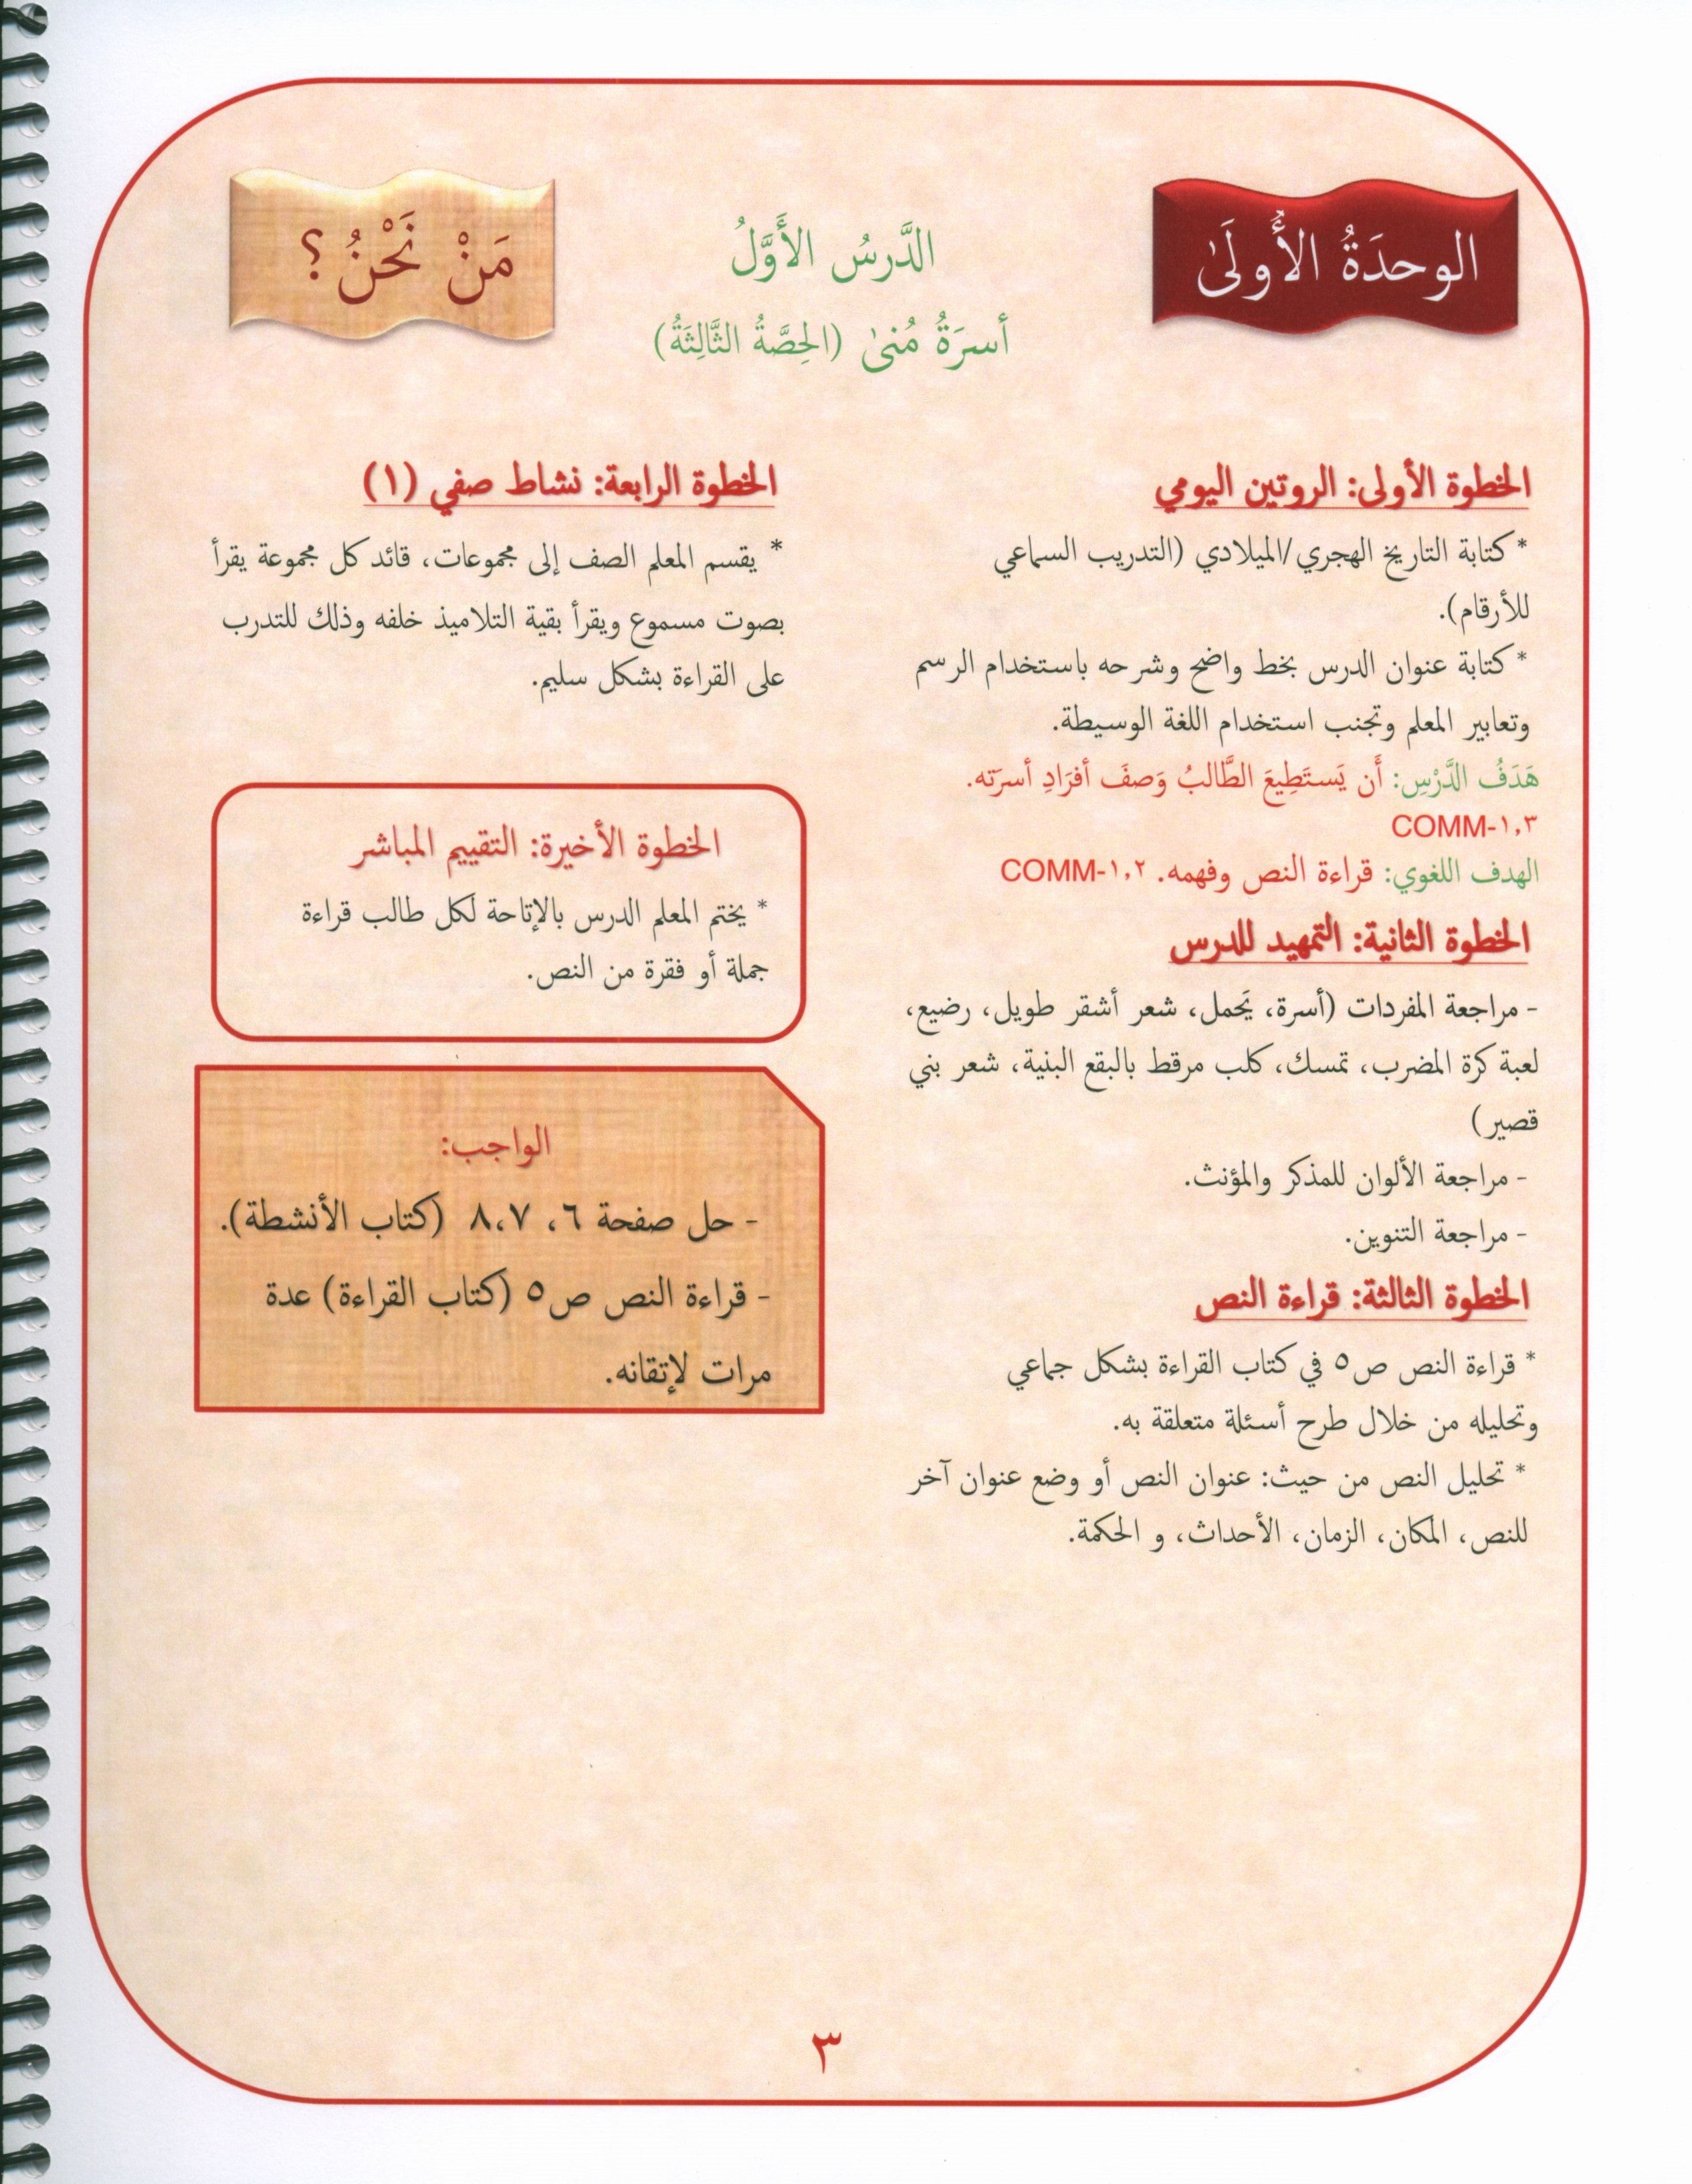 الوحدَةُ الأُولَىٰ
الدَّرسُ الأَوَّلُ
أسرَةُ مُنىٰ (الحِصَّةُ الثَّالِثَةُ)
مَنْ نَحْنُ؟
الخطوة الأولى: الروتين اليومي
* كتابة التاريخ الهجري/الميلادي (التدريب السماعي
للأرقام).
* كتابة عنوان الدرس بخط واضح وشرحه باستخدام الرسم
وتعابير المعلم وتجنب استخدام اللغة الوسيطة.
هَدَفُ الدَّرْسِ: أَن يَستَطِيعَ الطَّالبُ وَصفَ أفرَادِ أسرَته.
COMM-١,٣
الهدف اللغوي: قراءة النص وفهمه. COMM-١,٢
الخطوة الثانية: التمهيد للدرس
- مراجعة المفردات (أسرة، يَحمل، شعر أشقر طويل، رضيع،
لعبة كرة المضرب، تمسك، كلب مرقط بالبقع البنية، شعر بني
قصير)
- مراجعة الألوان للمذكر والمؤنث.
- مراجعة التنوين.
الخطوة الثالثة: قراءة النص
* قراءة النص ص٥ في كتاب القراءة بشكل جماعي
وتحليله من خلال طرح أسئلة متعلقة به.
* تحليل النص من حيث: عنوان النص أو وضع عنوان آخر
للنص، المكان، الزمان، الأحداث، و الحكمة.
الخطوة الرابعة: نشاط صفي (١)
* يقسم المعلم الصف إلى مجموعات، قائد كل مجموعة يقرأ
بصوت مسموع ويقرأ بقية التلاميذ خلفه وذلك للتدرب
على القراءة بشكل سليم.
الخطوة الأخيرة: التقييم المباشر
* يختم المعلم الدرس بالإتاحة لكل طالب قراءة
جملة أو فقرة من النص.
الواجب:
- حل صفحة ٦، ٧،٨ (كتاب الأنشطة).
- قراءة النص ص٥ (كتاب القراءة) عدة
مرات لإتقانه.
٣